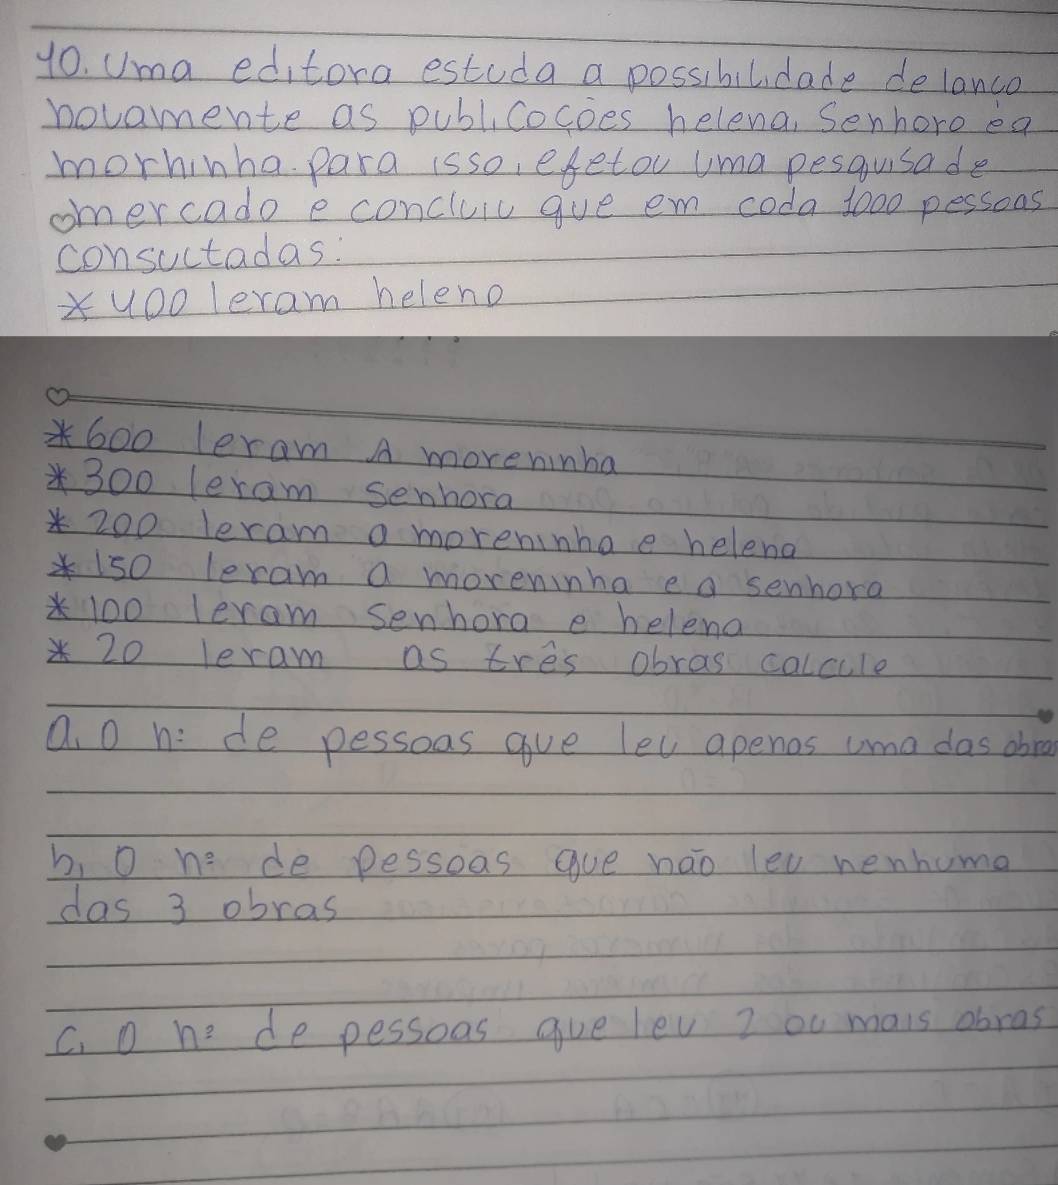 10. Uma editora estuda a possibilidade de lanço
novamente as publicocões helena, Senhoro e a
morhinha. para isso, efetou uma pesquisa de
mercado e concluiu que em coda 1000 pessoas
consuctadas:
* 400 leram heleno
* 600 leram A moreninha
* 300 leram senhora
* 200 leram a moreninha e helena
* 150 leram a moreninha e a senhora
* 100 leram senhora e helena
* 20 leram as três obras calcule
a, o nº de pessoas que leu apenas uma das obras
b, o nº de pessoas que não leu nenhuma
das 3 obras
c, o nº de pessoas que leu 2 ou mais obras